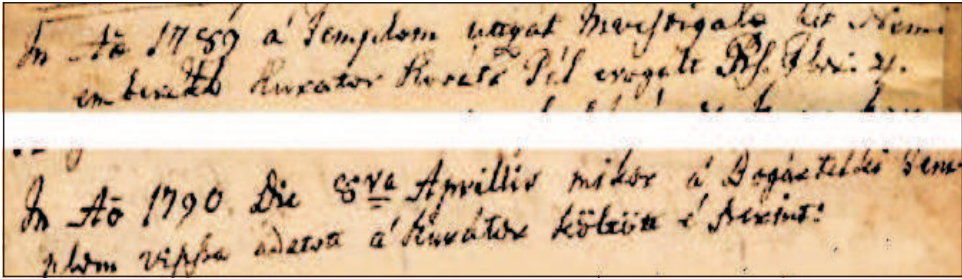 In Aō 1789 á Templom uagát Investigaló két Nemes
emberekk Kurator Kováts Pál erogált Rh. Flor. 2.
In Aō 1790 Die 8va Aprillis mikor á Bogártelki Tem-
plom vissza adatott á Kurátor költött é szerint: